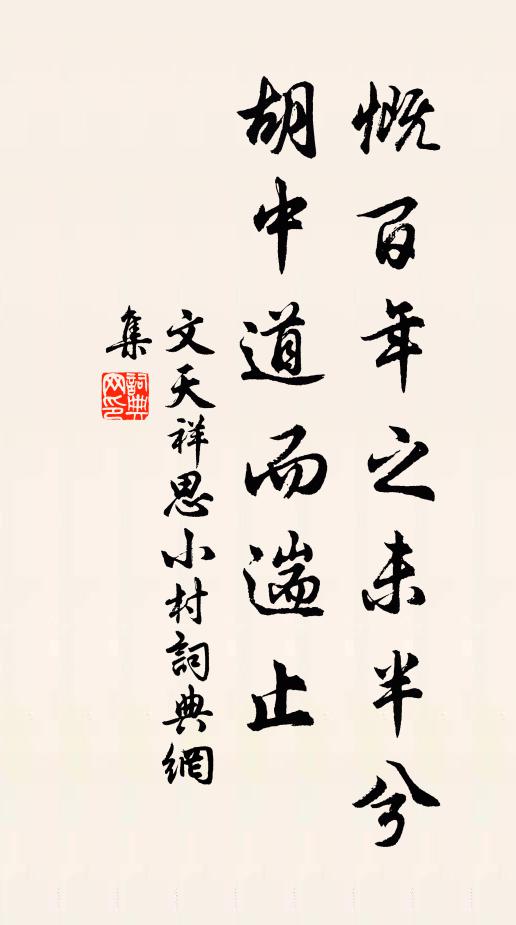 慨百年之未半兮
胡中道而遄止
文天祥思小村詞典網
集
詞典网印